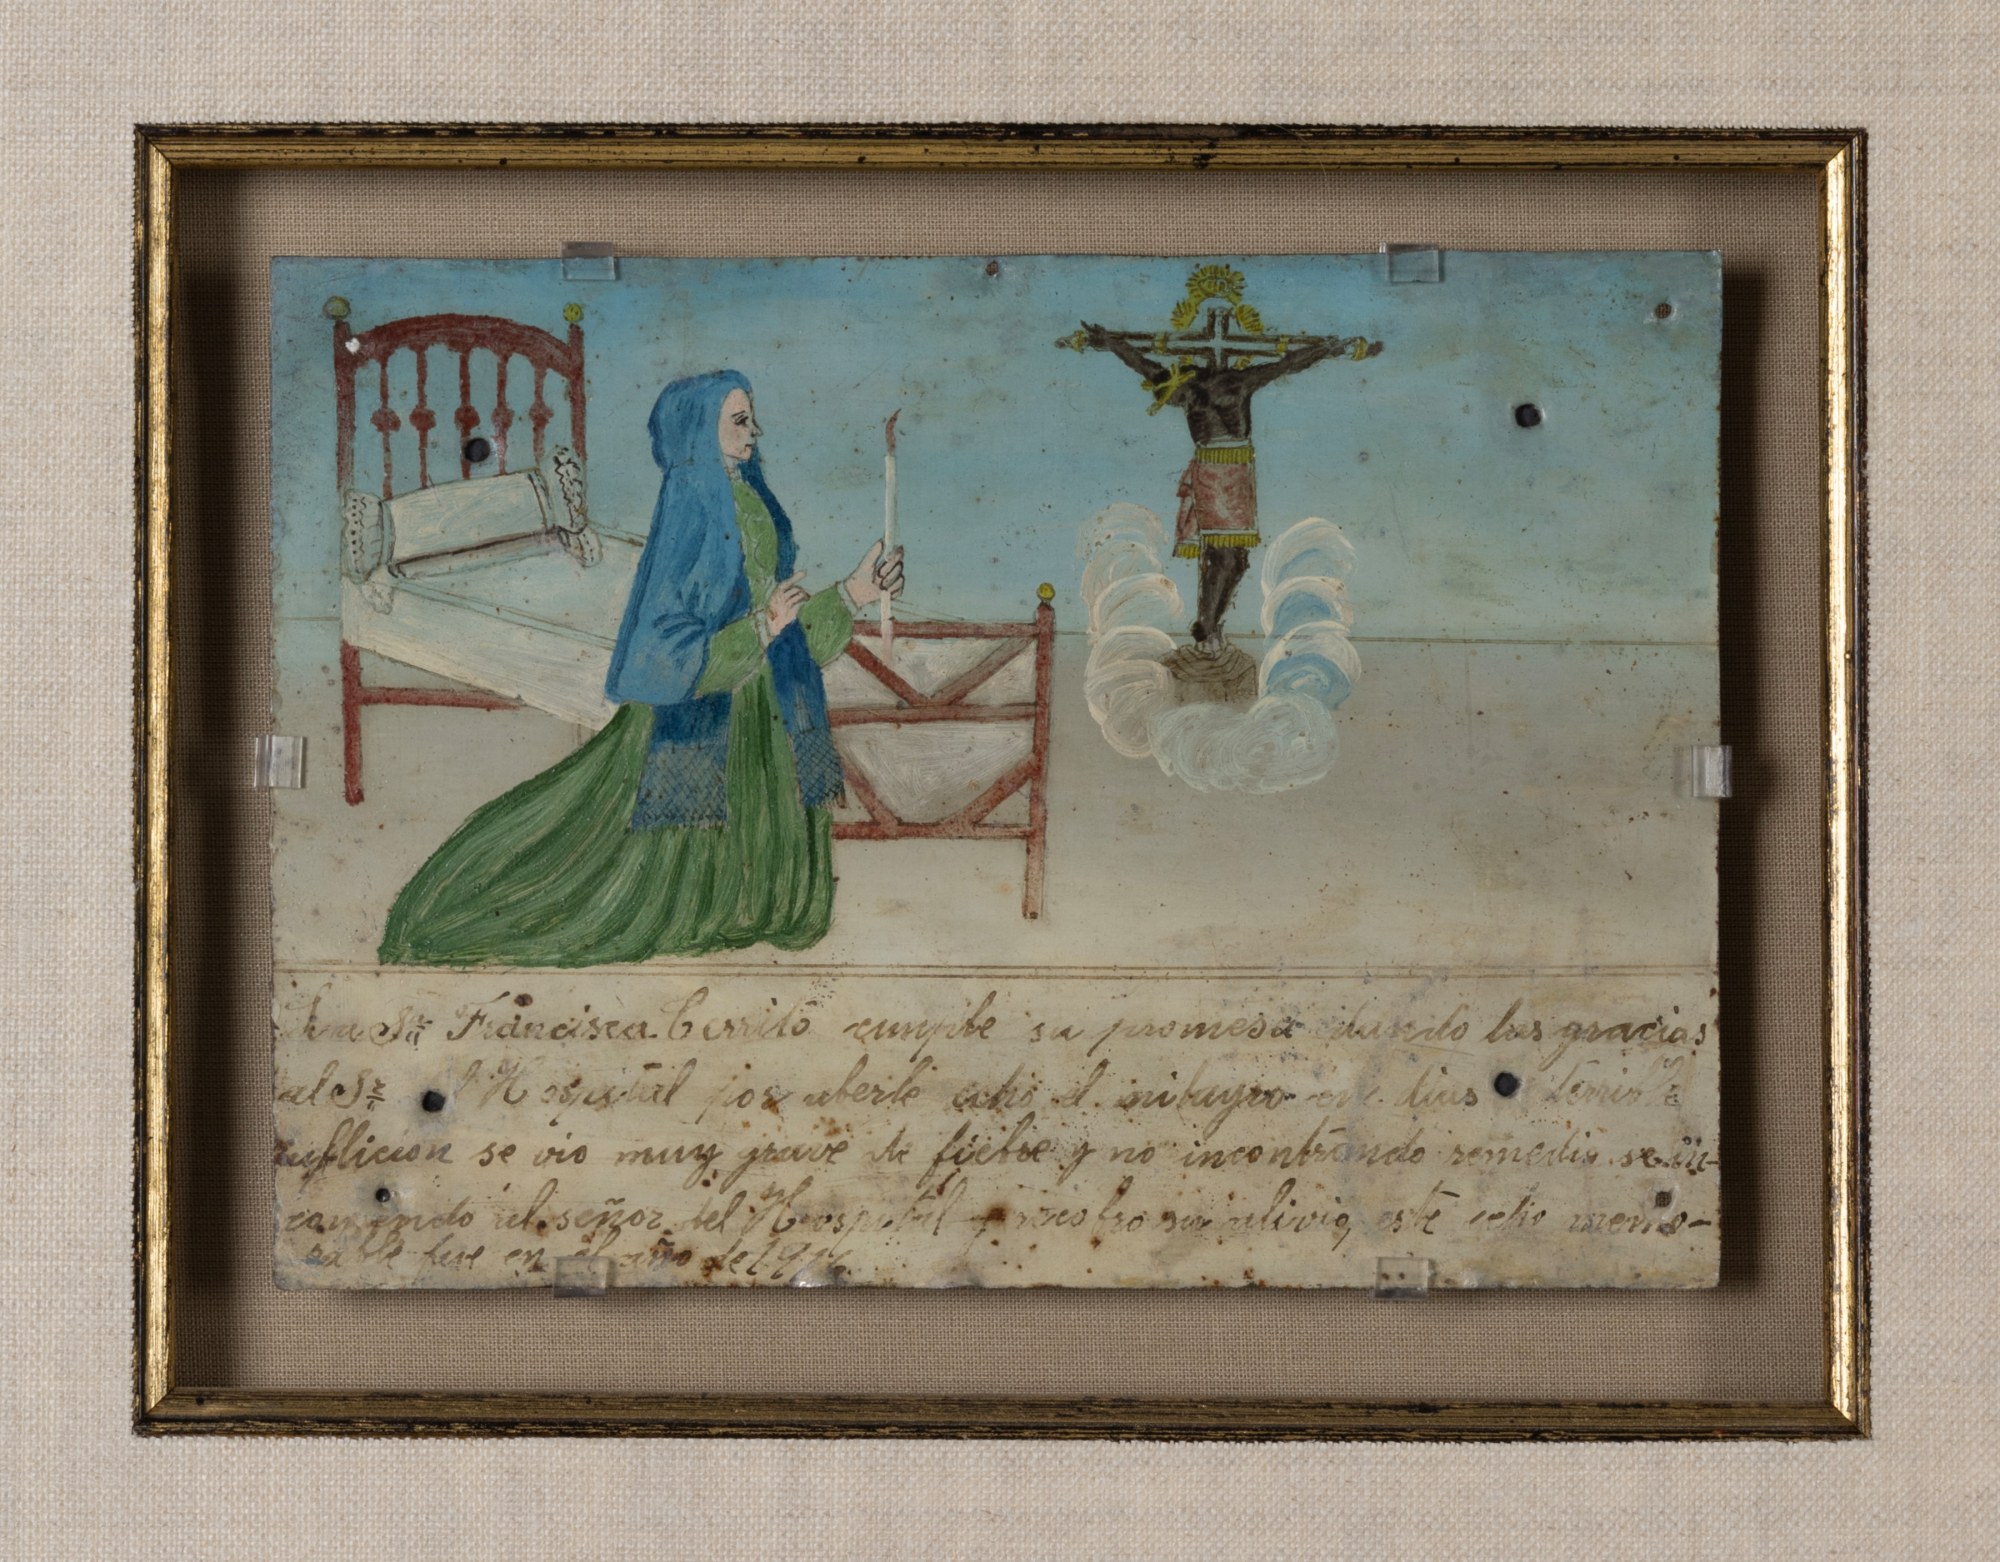 La Sra Francisca Cerrito cumple su promesa dando las gracias
al Sr Hospital por aberle echo el milagro dias terrible
aflicion se vio muy grave de fiebre y no incontrando remedio se in-
comendo al señor del Hospital y recobro su alivio, este echo memo-
rable fue en el año de